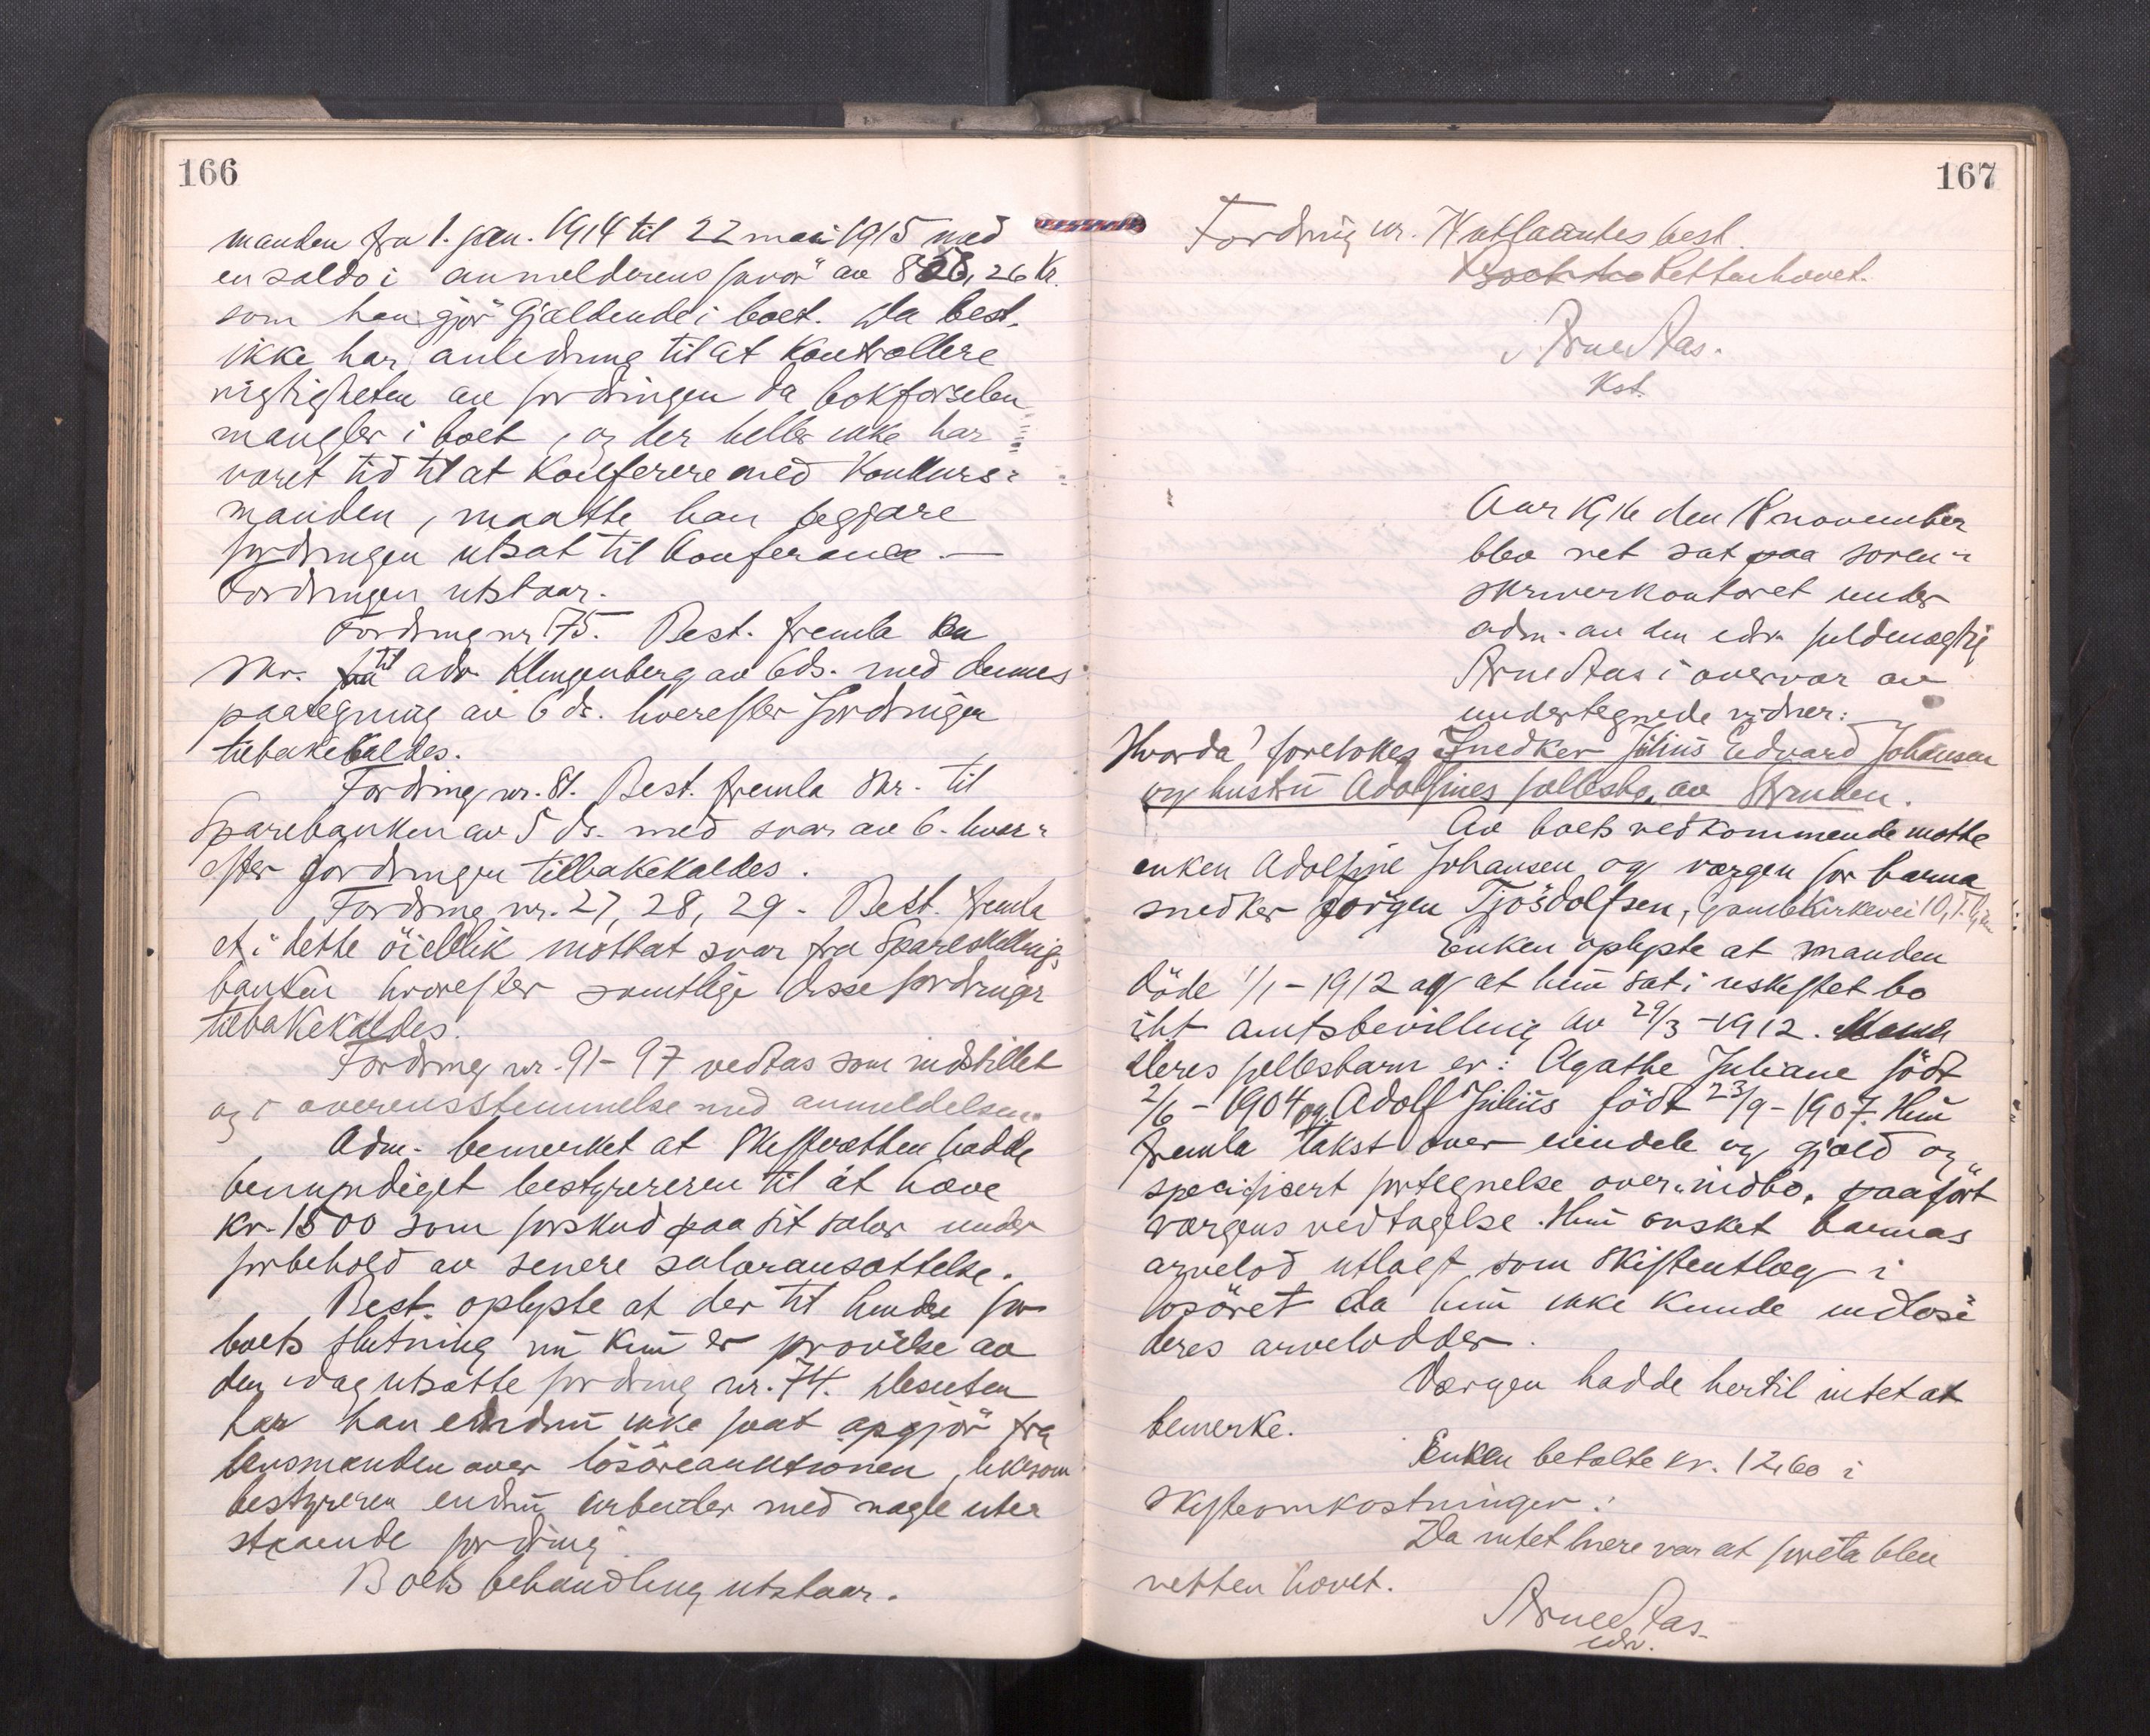 166
manden fra 1. jan. 1914 til 22 mai 1915 med
en saldo i anmelderens favör av 828,26 Kr.
som han gjör gjældende i boet. Da best.
ikke har anledning til at kontrollere
rigtigheten av fordringen da bokförselen
mangler i boet, og der heller ikke har
været tid til at konferere med konkurs-
manden, maatte han begjære
fordringen utsat til konferance. —
Fordringen utstaar.
Fordring nr. 75. Best. fremla en
skr. til adv. Klingenberg av 6 ds. med dennes
paategning av 6 ds. hvorefter fordringen
tilbakekaldes.
Fordring nr. 81. Best. fremla skr. til
Sparebanken av 5 ds. med svar av 6. hvor-
efter fordringen tilbakekaldes.
Fordring nr. 27, 28, 29. Best. fremla
et i dette öieblik mottat svar fra Spareskillings
banken hvorefter samtlige disse fordringer
tilbakekaldes.
Fordring nr. 91-97 vedtas som indstillet
og i overensstemmelse med anmeldelsen.
Adm. bemerket at skifteretten hadde
bemyndiget bestyreren til at hæve
kr. 1500 som forskud paa sit salær under
forbehold av senere salæransættelse.
Best. oplyste at der til hinder for
boets slutning nu kun er prövelse av
den idag utsatte fordring nr. 74. Desuten
har han endnu ikke faat opgjör fra
lensmanden over lösöreauktionen, likesom
bestyreren endnu arbeider med nogle ute-
staaende fordring
Boets behandling utstaar.
167
Fordring nr. utlaantes best.
Retten hævet.
Arne Aas.
Kst.
Aar 1916 den 18 november
blev ret sat paa soren-
skriverkontoret under
adm. av den edsv. fuldmægtig
Arne Aas i overvær av
undertegnede vidner:
Hvorda foretokes Snedker Julius Edvard Johansen
og hustru Adolfines fællesbo, av Strinden.
Av boets vedkommende mötte
enken Adolfine Johansen og værgen for barna
snedker Jörgen Tjösdolfsen, Gamlekirkevei 10,
Enken oplyste at manden
döde 1/1-1912 og at hun sat i uskiftet bo
iht amtsbevilling av 29/3-1912.
deres fællesbarn er: Agathe Juliane födt
2/6-1904 og Adolf Julius födt 23/9-1907. Hun
fremla takst over eiendele og gjæld og
specificert fortegnelse over indbo, paafört
værgens vedtagelse. Hun önsket barnas
arvelod utlagt som skifteutlæg i
lösöret da hun ikke kunde indlöse
deres arvelodder.
Værgen hadde hertil intet at
bemerke.
Enken betalte kr. 12,60 i
skifteomkostninger.
Da intet mere var at foreta blev
retten hævet.
Arne Aas
edsv.